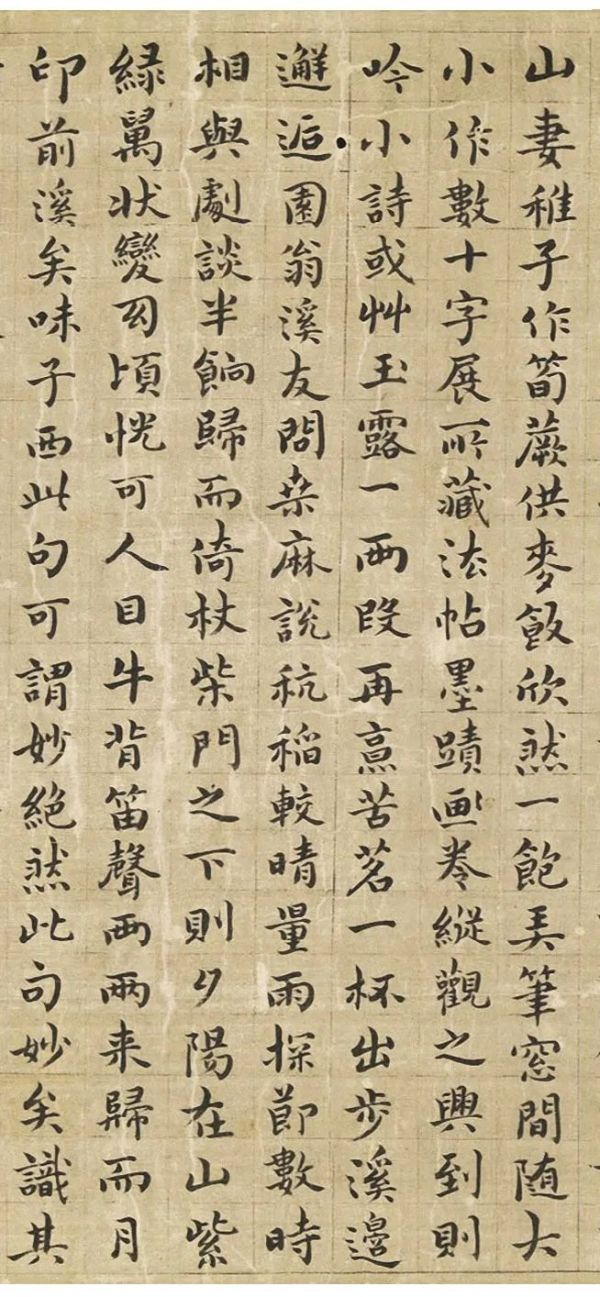 山妻稚子作筍蕨供麥飯欣然一飽弄筆窓間随大
小作數十字展所藏法帖墨蹟画卷縱觀之興到則
吟小詩或艸玉露一兩段再烹苦茗一杯出步溪邊
邂逅園翁溪友問桒麻說秔稲較晴量雨探節數時
相與劇談半餉歸而倚杖柴門之下則夕陽在山紫
緑萬状變幻頃恍可人目牛背笛聲兩兩来歸而月
印前溪矣味子西此句可謂妙絶然此句妙矣識其